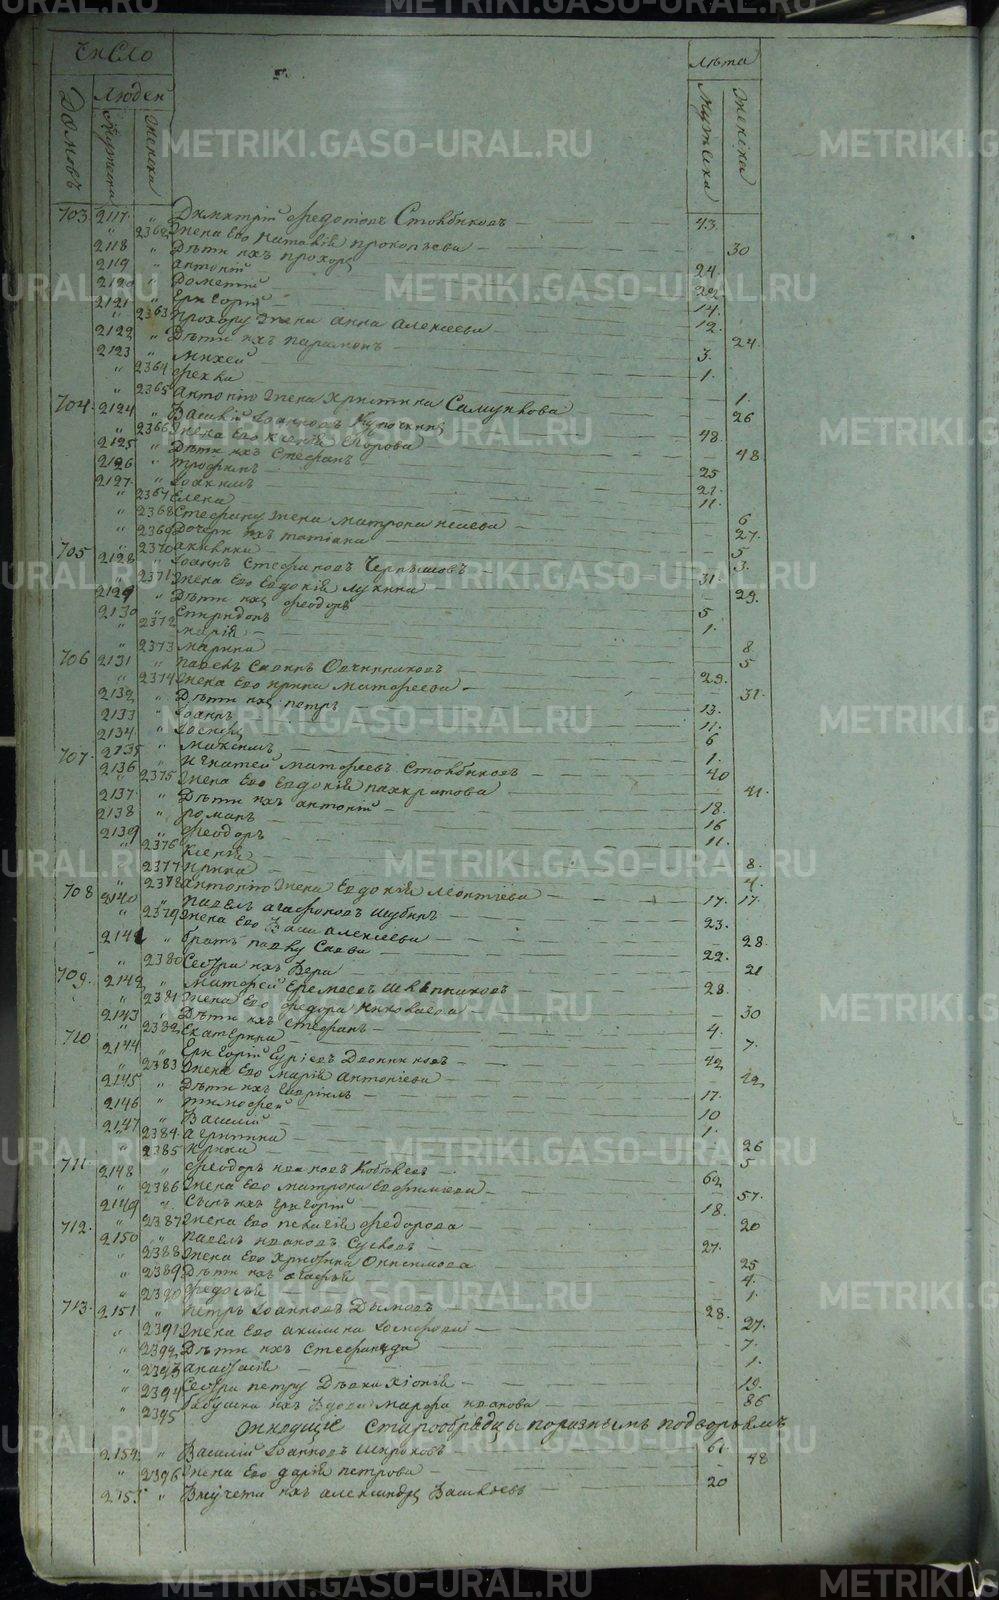 Число
Людей
Домовъ
Мужеска
Женска
Лѣта
Мужеска
Женска
703 2117 " Димитрій Федотовъ Столбиковъ — 43.
" 2362 Жена Его Наталія Прокопьева — 30
2118 " Дѣти ихъ Прохоръ — 24.
2119 " Антоній — 22.
2120 " Дометій — 14.
2121 " Григорій — 12.
" 2363 Прохору жена Анна Алексѣева — 24.
2122 " Дѣти ихъ Парамонъ — 3.
2123 " Михей — 1.
" 2364 Фекла — 1.
" 2365 Антонію жена Христина Самуилова — 26
704. 2124 " Василій Іоанновъ — 48.
" 2366 Жена Его Ксенія — 48.
2125 " Дѣти ихъ Стефанъ — 25
2126 " Трофимъ — 21.
2127. " Іоакимъ — 11.
" 2367 Елена — 6
" 2368 Стефану жена Матрона Исаева — 27.
" 2369 Дочери ихъ Татіана — 5
" 2370 Акилина — 3.
705 2128 " Іоаннъ Стефановъ Чернышовъ — 31.
" 2371 Жена Его Евдокія Лукина — 29.
2129 " Дѣти ихъ Феодоръ — 5
2130 " Спиридонъ — 1.
" 2372 Марія — 8
" 2373 Марина — 5
706 2131 " Павелъ Савинъ Овчинниковъ — 29.
" 2374 Жена Его Ирина Матфеева — 31.
2132 " Дѣти ихъ Петръ — 13.
2133 " Іоаннъ — 11.
2134 " Іосифъ — 6
2135 " Максимъ — 1.
707. 2136 " Игнатей Матфеевъ Столбиковъ — 40
" 2375 Жена Его Евдокія Панкратова — 41.
2137. " Дѣти ихъ Антоній — 18.
2138 " Романъ — 16
2139 " Феодоръ — 11.
" 2376 Ксенія — 8.
" 2377 Ирина — 4.
" 2378 Антонію жена Евдокія Леонтіева — 17.
708 2140 " Павелъ Агафоновъ Шубинъ — 23.
" 2379 Жена Его Алексѣева — 28.
2141 " Братъ Павлу Савва — 22.
" 2380 Сестра ихъ Вера — 21
709. 2142 " Матфей Еремеевъ — 28.
" 2381 Жена Его Федора Николаева — 30
2143 " Дѣти ихъ Стефанъ — 4.
" 2382 Екатерина — 7.
710 2144 " Григорій Двойниковъ — 42
" 2383 Жена Его Марія Антоніева — 42
2145 " Дѣти ихъ — 17.
2146 " Тимофей — 10
2147 " Василій — 1.
" 2384 Агрипина — 26
" 2385 Ирина — 5
711. 2148 " Феодоръ Ивановъ Кобылевъ — 62
" 2386 Жена Его Матрона Евфимиева — 57.
2149 " Сынъ ихъ Григорій — 18.
" 2387 Жена Его Пелагія Федорова — 20
712. 2150 " Павелъ Ивановъ — 27.
" 2388 Жена Его Христина Онисимова — 25
" 2389 Дѣти ихъ Агафья — 4.
" 2390 Федосья — 1.
713. 2151 " Петръ Іоанновъ Дымовъ — 28.
" 2391 Жена Его Акилина — 27.
" 2392 Дѣти ихъ Стефанида — 7.
" 2393 Анастасія — 1.
" 2394 Сестра Петру Дѣвка Хіонія — 19.
" 2395 Бабушка ихъ Вдова Марфа Иванова — 86
Живущіе Старообрядцы поразнымъ подворьямъ
2152 " Василій Іоанновъ Широковъ — 61.
" 2396 Жена Его Дарія Петрова — 48
2153 " Внучета ихъ Александръ Васильевъ — 20